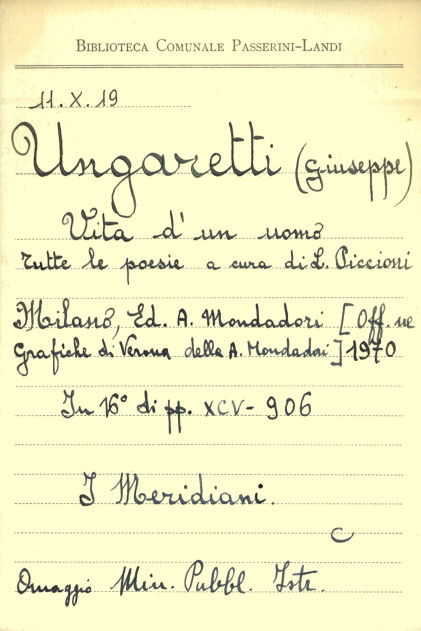 BIBLIOTECA COMUNALE PASSERINI-LANDI
11.X.19
Ungaretti (Giuseppe)
Vita d'un uomo
Tutte le poesie a cura di L. Piccioni
Milano, Ed. A. Mondadori [Off.ne
Grafiche di Verona della A. Mondadori] 1970
In 16° di pp. XCV-906
I Meridiani.
C
Omaggio Min. Pubbl. Istr.